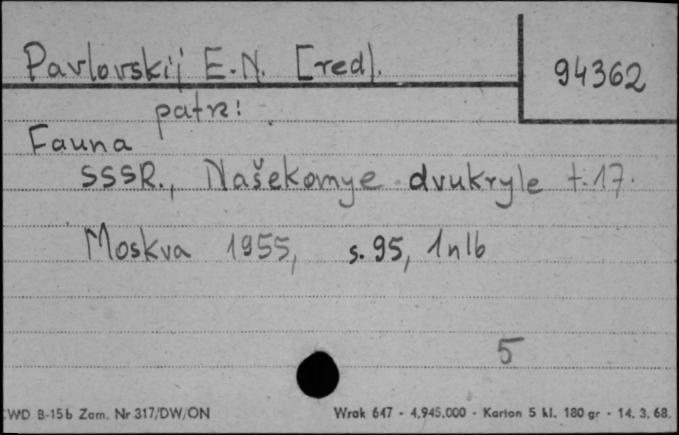 Pavlovskij E.N. [red].
94362
patrz:
Fauna
SSSR., Našekomye dvukryle t.17.
Moskva 1955, s.95, 1nlb
5
CWD B-15b Zam. Nr 317/DW/ON Wrak 647 - 4.945.000 - Karton 5 kl. 180 gr - 14. 3. 68.